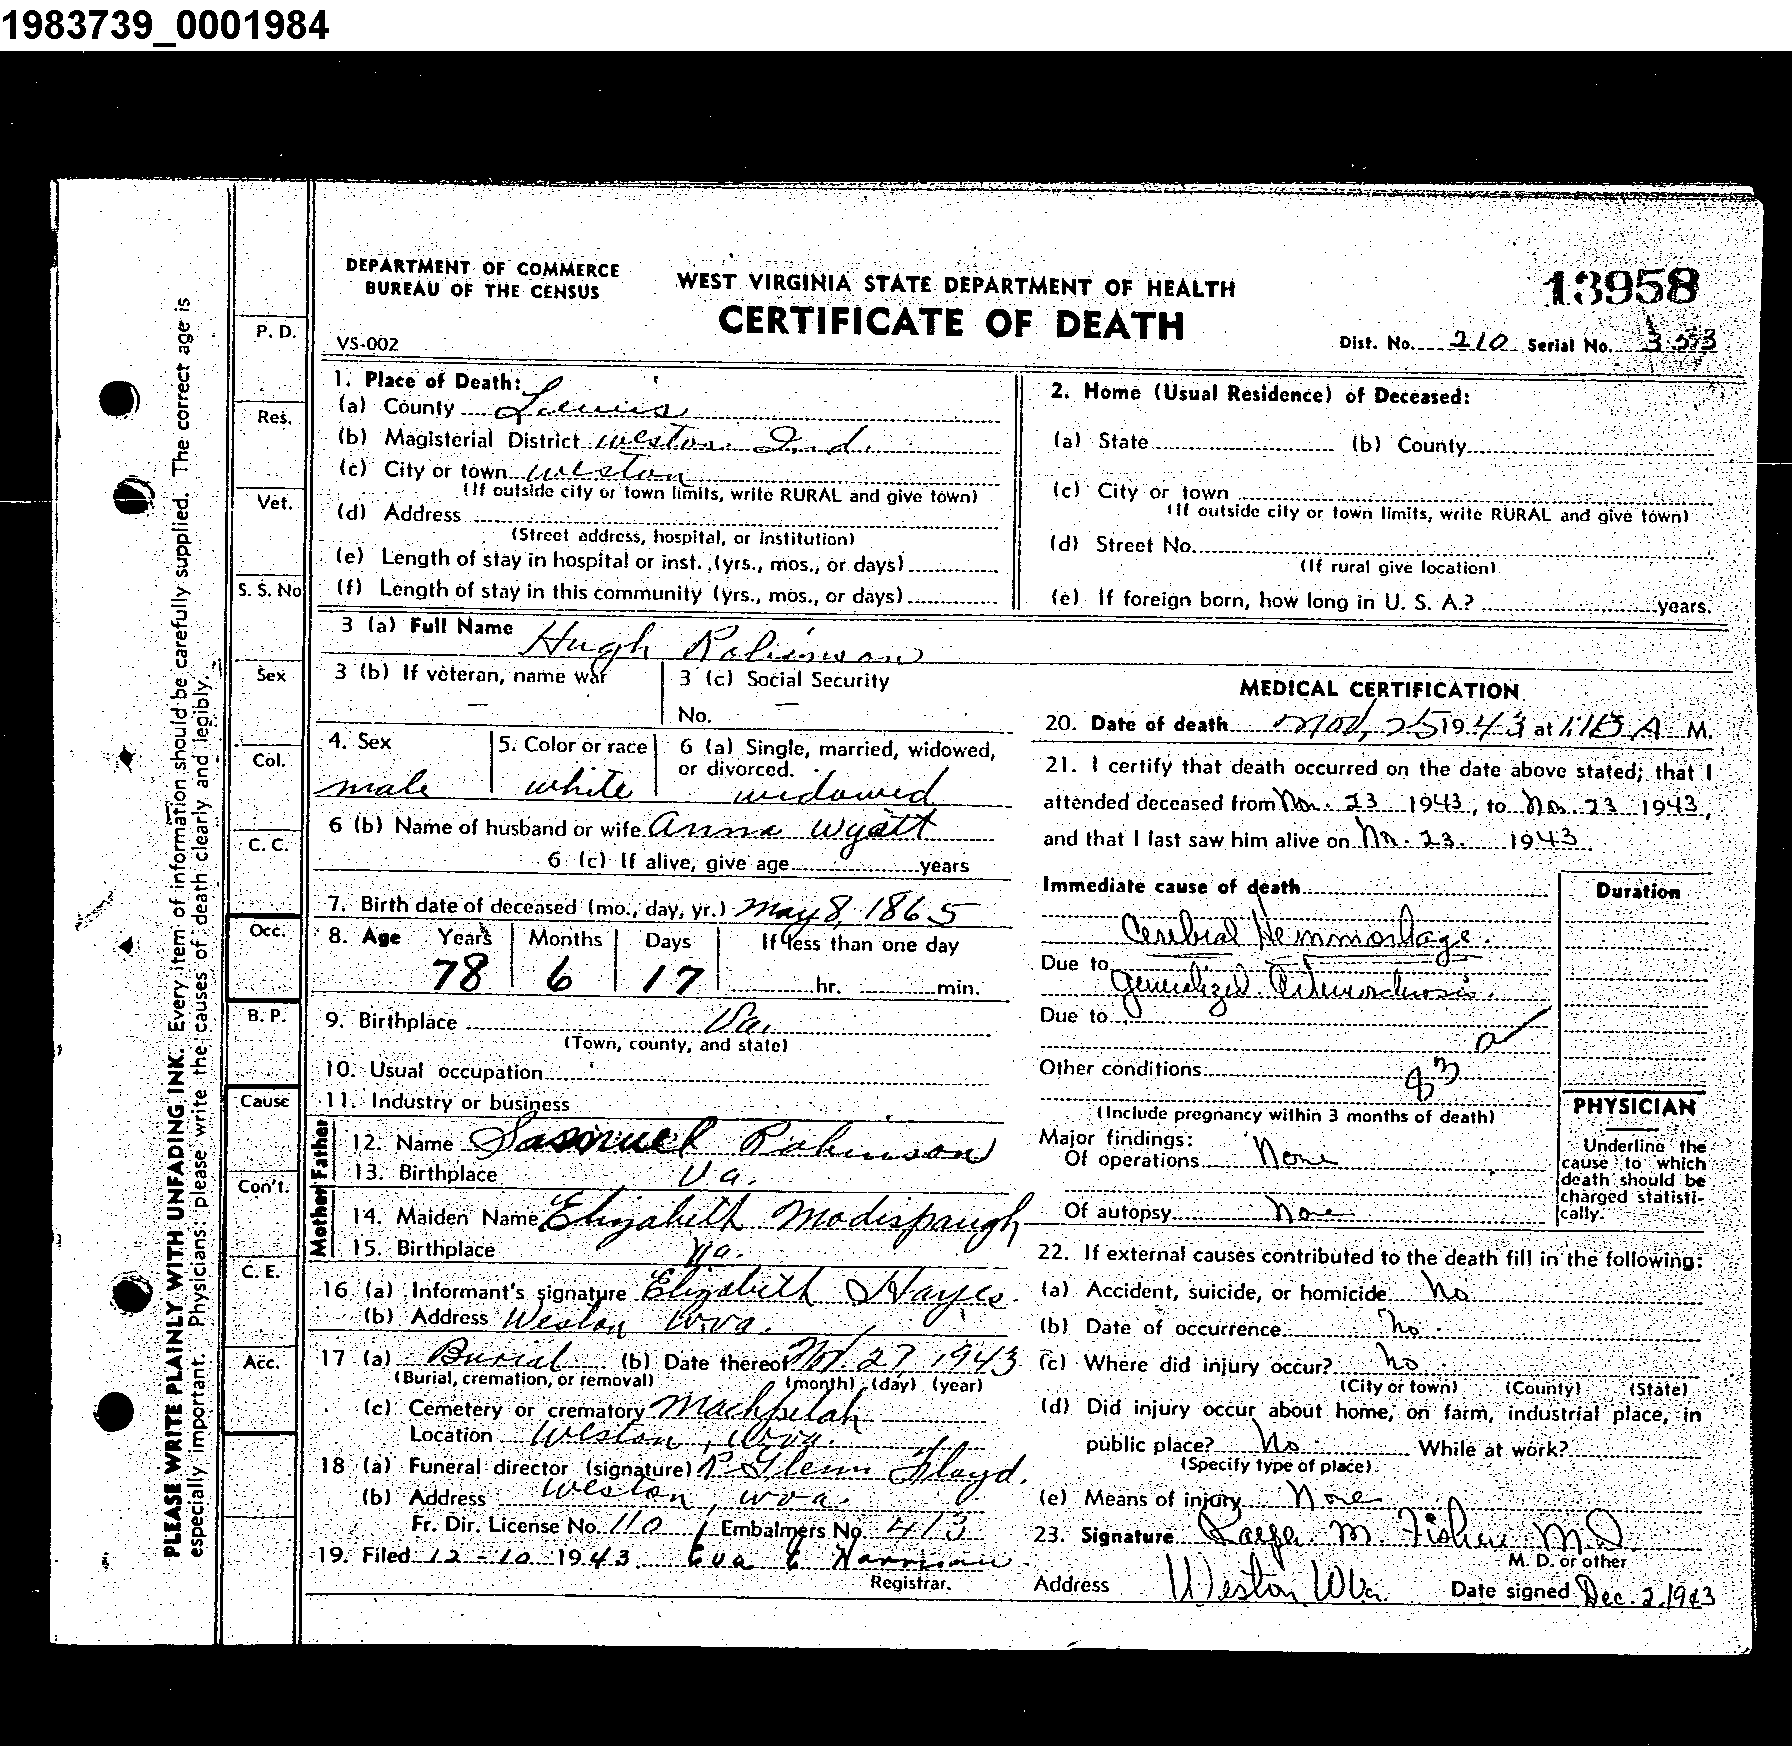 1983739_0001984
DEPARTMENT OF COMMERCE
BUREAU OF THE CENSUS
WEST VIRGINIA STATE DEPARTMENT OF HEALTH
CERTIFICATE OF DEATH
13958
VS-002
Dist. No. 210 Serial No.
PLEASE WRITE PLAINLY WITH UNFADING INK. Every item of information should be carefully supplied. The correct age is
especially important. Physicians: please write the causes of death clearly and legibly.
P. D.
Res.
Vet.
S. S. No
Sex
Col.
C. C.
Occ.
B. P.
Cause
Con't.
C. E.
Acc.
1. Place of Death:
(a) County Lewis
(b) Magisterial District Weston Ind.
(c) City or town Weston
(If outside city or town limits, write RURAL and give town)
(d) Address
(Street address, hospital, or institution)
(e) Length of stay in hospital or inst. (yrs., mos., or days)
(f) Length of stay in this community (yrs., mos., or days)
2. Home (Usual Residence) of Deceased:
(a) State (b) County
(c) City or town
(If outside city or town limits, write RURAL and give town)
(d) Street No.
(If rural give location)
(e) If foreign born, how long in U. S. A.? years.
3 (a) Full Name Hugh Robinson
3 (b) If veteran, name war –
3 (c) Social Security
No. –
4. Sex
male
5. Color or race
white
6 (a) Single, married, widowed,
or divorced.
widowed
6 (b) Name of husband or wife Anna Wyatt
6 (c) If alive, give age years
7. Birth date of deceased (mo., day, yr.) May 8, 1865
8. Age Years Months Days If less than one day
78 6 17 hr. min.
9. Birthplace Va.
(Town, county, and state)
10. Usual occupation
11. Industry or business
Father
12. Name Samuel Robinson
13. Birthplace Va.
Mother
14. Maiden Name Elizabeth Modispaugh
15. Birthplace Va.
16 (a) Informant's signature Elizabeth Hayes
(b) Address Weston W.Va.
17 (a) Burial (b) Date thereof Nov. 27, 1943
(Burial, cremation, or removal) (month) (day) (year)
(c) Cemetery or crematory Machpelah
Location Weston, W.Va.
18 (a) Funeral director (signature) R. Glenn Floyd.
(b) Address Weston, W.Va.
Fr. Dir. License No. 110 Embalmers No. 413
19. Filed 12-10 1943 Eva C Harrison
Registrar.
MEDICAL CERTIFICATION
20. Date of death Nov, 25 1943 at A M.
21. I certify that death occurred on the date above stated; that I
attended deceased from Nov. 23 1943, to Nov. 23 1943,
and that I last saw him alive on Nov. 23. 1943
Immediate cause of death
Duration
Cerebral Hemmorhage.
Due to
Generalized Arteriosclerosis.
Due to
Other conditions
83 a
(Include pregnancy within 3 months of death)
Major findings:
Of operations None
Of autopsy None
PHYSICIAN
Underline the
cause to which
death should be
charged statisti-
cally.
22. If external causes contributed to the death fill in the following:
(a) Accident, suicide, or homicide No
(b) Date of occurrence No.
(c) Where did injury occur? No
(City or town) (County) (State)
(d) Did injury occur about home, on farm, industrial place, in
public place? No While at work?
(Specify type of place)
(e) Means of injury None
23. Signature M. Fisher M.D.
M. D. or other
Address Weston, W.Va. Date signed Dec. 2, 1943